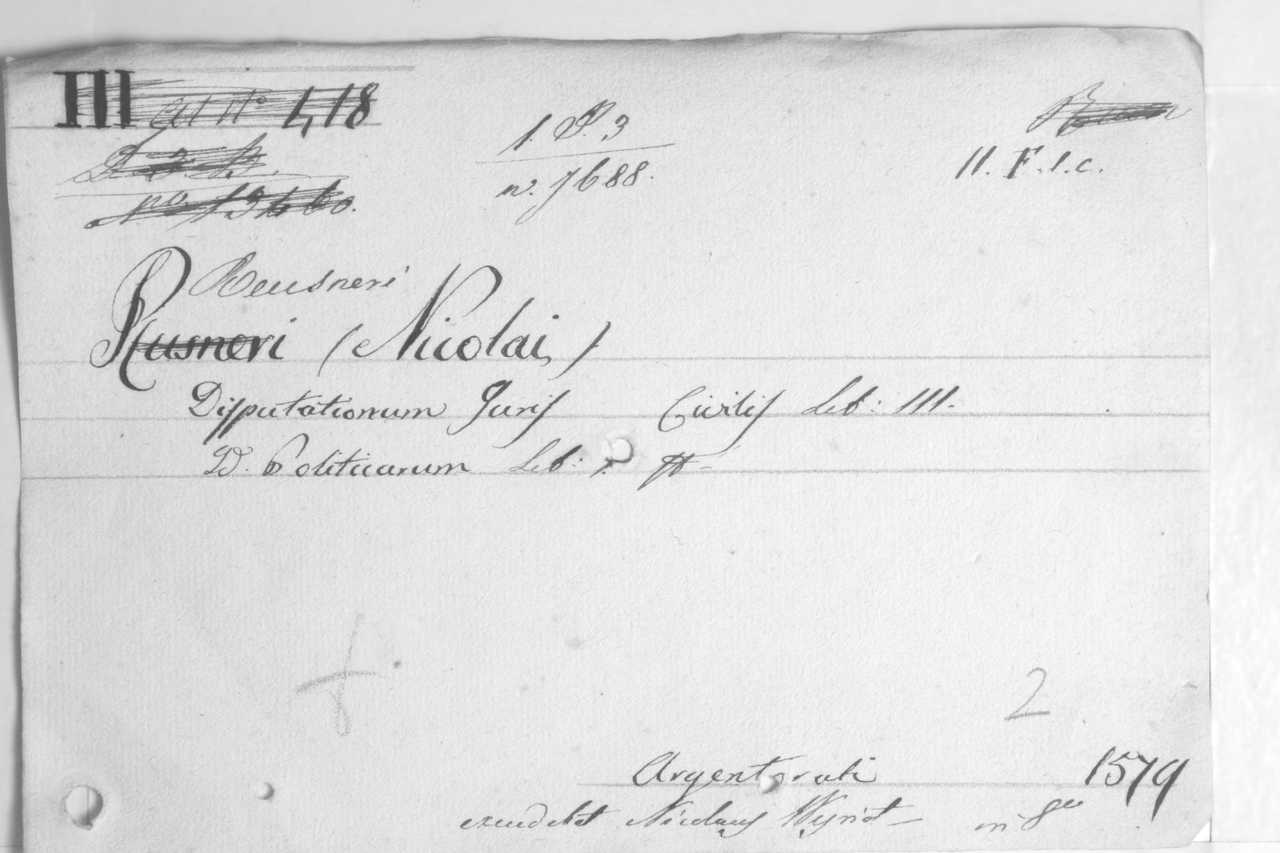 III ad N° 418
N° 13660.
1. P. 3
n. 7688.
II. F. 1. c.
Reusneri
Rusneri (Nicolai)
Disputationum Juris Civilis Lib: III.
D. Politicarum Lib:
2
Argentorati 1579
excudebat Nicolaus Wyriot in 8vo